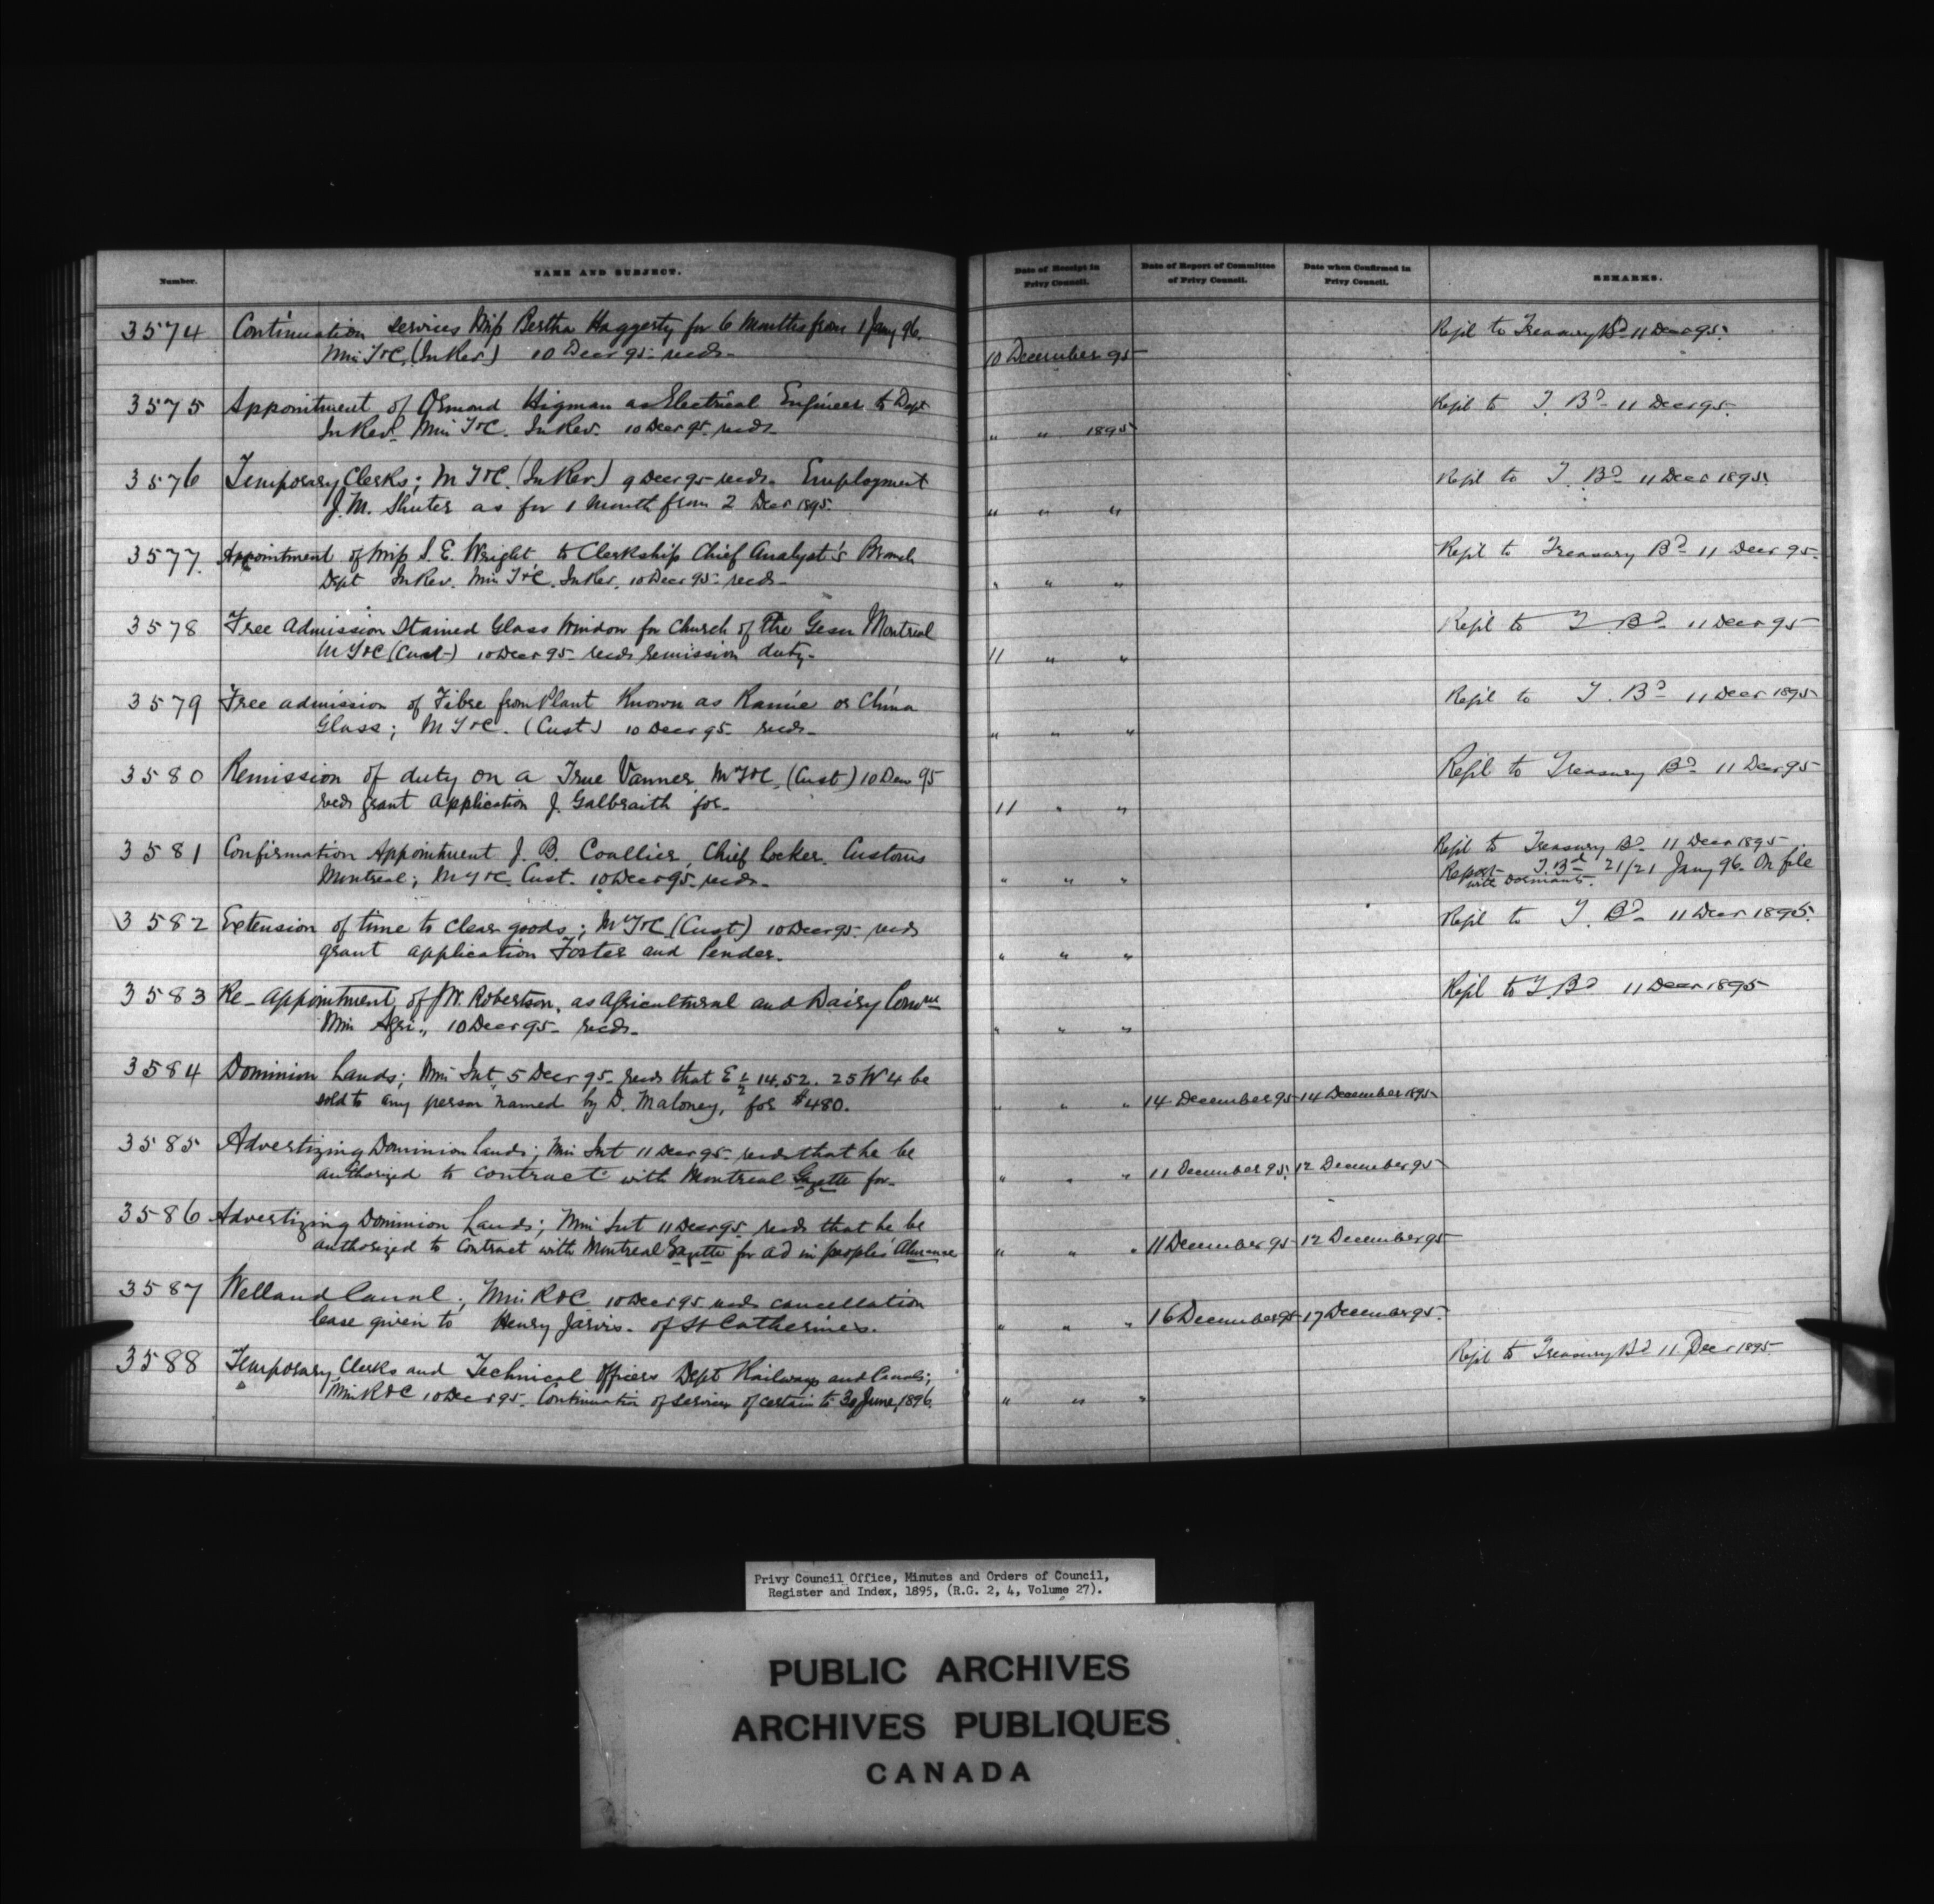 Number.
NAME AND SUBJECT.
Date of Receipt in Privy Council.
Date of Report of Committee of Privy Council.
Date when Confirmed in Privy Council.
REMARKS.
3574 Continuation services Miss Bertha Haggerty for 6 Months from 1 Jany 96.
Min T&C. (In Rev.) 10 Decr 95 - recds -
10 December 95
Ref'd to Treasury Bd 11 Decr 95.
3575 Appointment of Ormond Higman as Electrical Engineer to Dept
In Rev. Min T&C. In Rev. 10 Decr 95. recds -
" " 1895
Ref'd to T. Bd - 11 Decr 95.
3576 Temporary Clerks; M T&C. (In Rev.) 9 Decr 95 - recds. Employment
J. M. Shuter as for 1 month from 2 Decr 1895.
" " "
Ref'd to T. Bd 11 Decr 1895.
3577. Appointment of Miss S. E. Wright to Clerkship Chief Analyst's Branch
Dept In Rev. Min T&C. In Rev. 10 Decr 95 - recds -
" " "
Ref'd to Treasury Bd - 11 Decr 95.
3578 Free Admission Stained Glass Window for Church of the Gesu Montreal
M T&C (Cust -) 10 Decr 95 - recds remission duty -
11 " "
Ref'd to T. Bd - 11 Decr 95
3579 Free admission of Fibre from Plant Known as Ramie or China
Glass; M T&C. (Cust) 10 Decr 95 - recds -
" " "
Ref'd to T. Bd 11 Decr 1895
3580 Remission of duty on a True Vanner, M T&C, (Cust) 10 Decr 95
recds grant application J. Galbraith for -
11 " "
Ref'd to Treasury Bd 11 Decr 95
3581 Confirmation Appointment J. B. Coallier, Chief Locker. Customs
Montreal; M T&C. Cust. 10 Decr 95 - recds -
" " "
Ref'd to Treasury Bd - 11 Decr 1895
Report T. Bd 21/21 Jany 96. On file
with dormants.
3582 Extension of time to clear goods; M T&C (Cust) 10 Decr 95 - recds
grant application Foster and Pender.
" " "
Ref'd to T. Bd - 11 Decr 1895.
3583 Re-appointment of J W. Robertson, as Agricultural and Dairy Comr
Min Agri., 10 Decr 95 - recds -
" " "
Ref'd to T. Bd 11 Decr 1895
3584 Dominion Lands; Min Int. 5 Decr 95 - recds that E ½ 14.52. 25 W 4 be
sold to any person named by D. Maloney, for $480.
" " " 14 December 95 14 December 1895
3585 Advertizing Dominion Lands; Min Int 11 Decr 95 - recds that he be
authorized to contract with Montreal Gazette for -
" " " 11 December 95. 12 December 95
3586 Advertizing Dominion Lands; Min Int 11 Decr 95 recds that he be
authorized to contract with Montreal Gazette for ad in peoples' Almanac
" " " 11 December 95 12 December 95
3587 Welland Canal; Min R&C 10 Decr 95 recds cancellation
lease given to Henry Jarvis. of St Catherines.
" " " 16 December 95 17 December 95.
3588 Temporary Clerks and Technical Officers Dept Railways and Canals;
Min R&C 10 Decr 95. Continuation of services of certain to 30 June, 1896.
" " "
Ref'd to Treasury Bd 11 Decr 1895
Privy Council Office, Minutes and Orders of Council,
Register and Index, 1895, (R.G. 2, 4, Volume 27).
PUBLIC ARCHIVES
ARCHIVES PUBLIQUES
CANADA